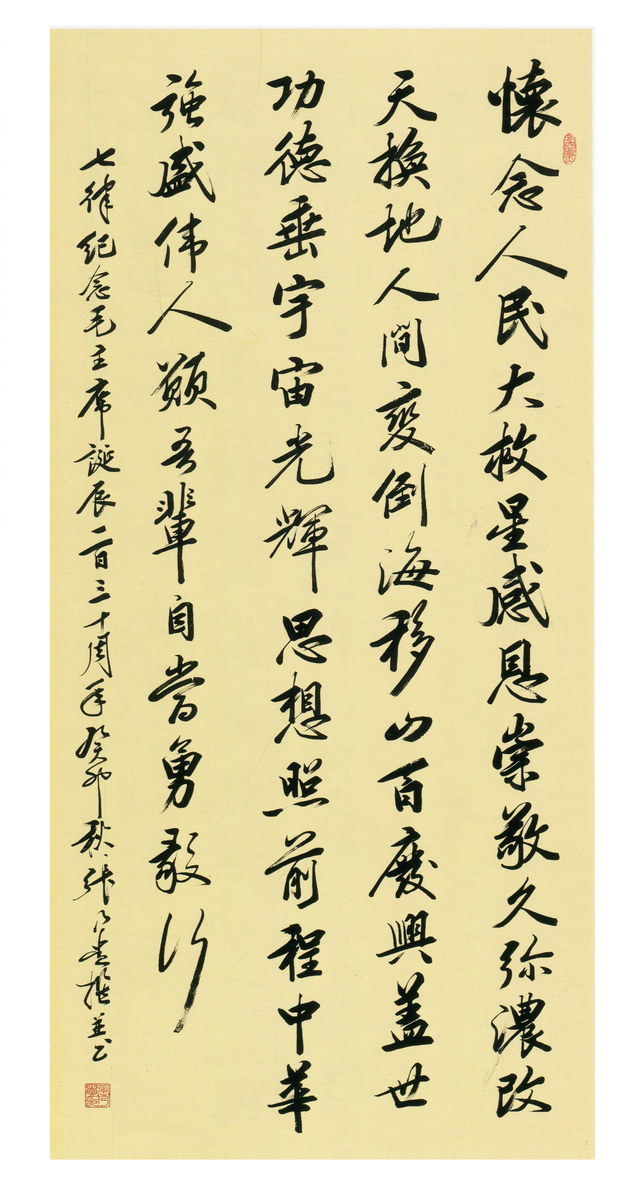 懷念人民大救星感恩崇敬久弥濃改
天換地人間變倒海移山百廢興盖世
功德垂宇宙光輝思想照前程中華
強盛伟人願吾輩自當勇敢行
七律紀念毛主席誕辰一百三十周年癸卯秋张乃撰並书